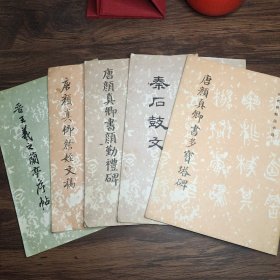 晋王羲之蘭亭序帖
唐顔真卿祭姪文稿
唐顔真卿書顔勤禮碑
秦石鼓文
唐顔真卿書多寶塔碑